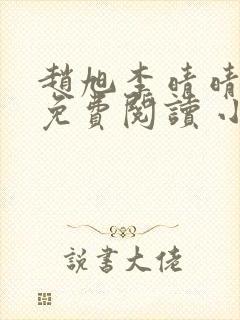 趙旭李晴晴
免費閱讀小
説書大佬